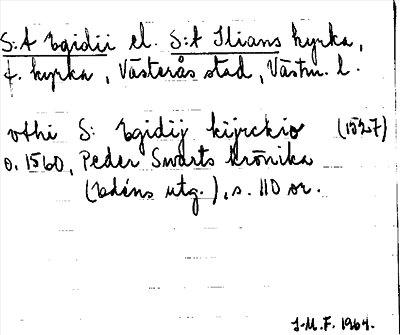 S:t Egidii el. S:t Ilians kyrka,
f. kyrka, Västerås stad, Västm. l.
vthi S: Egidij kijrckio (1527)
o. 1560, Peder Swarts krönika
(Edéns utg.), s. 110 or.
I.M.F. 1964.